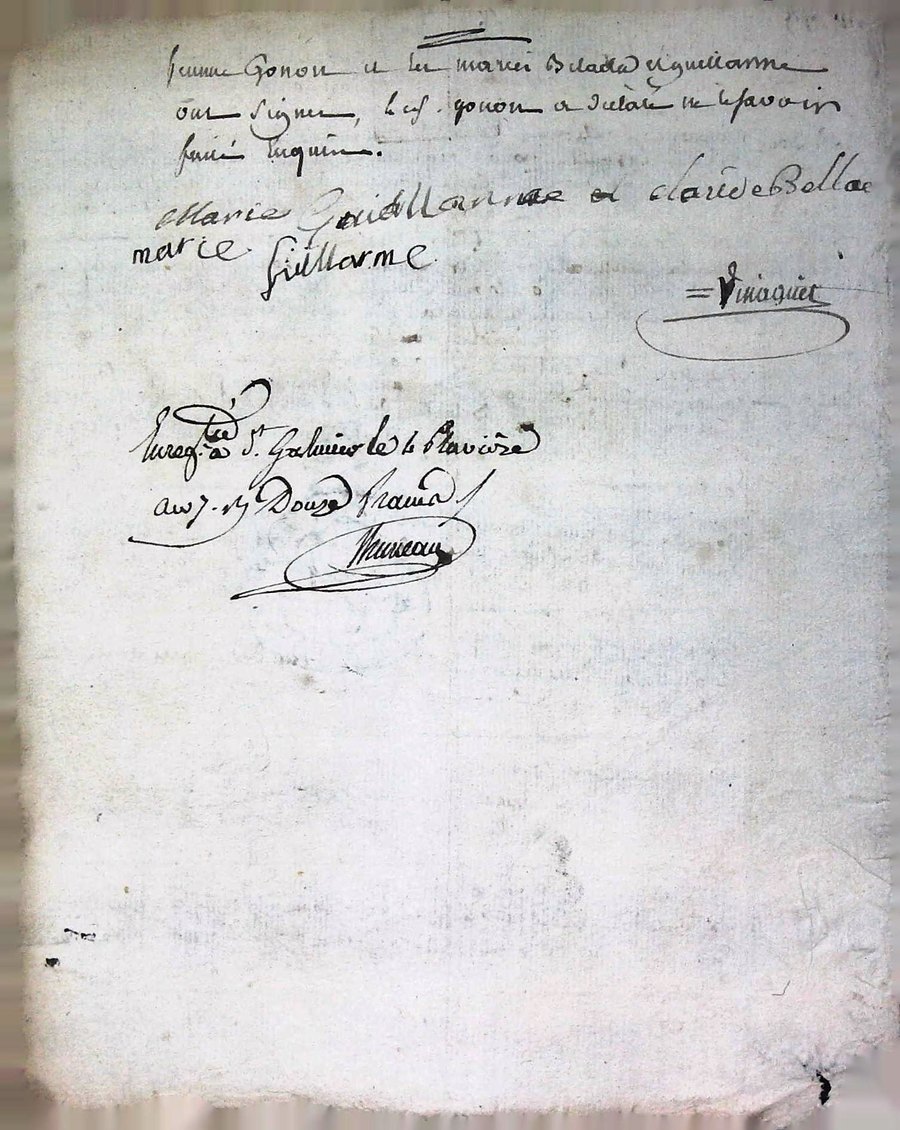 femme Gonon et les mariés Belada et guillarme
ont signer, le cf. gonon a déclaré ne le savoir
faire Enquis.
Marie Guillarme et claude Bella
marie Guillarme
= Vinaguet
Enreg.tré à St. Galmier le 4 Pluviôse
an 7. R Douze francs
Bruneau